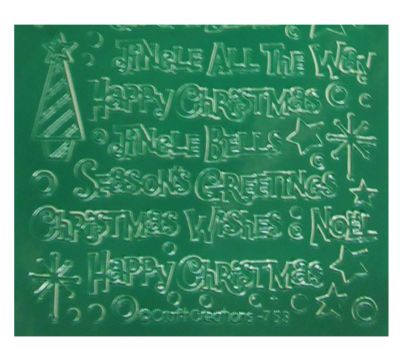 Jingle All The Way
Happy Christmas
Jingle Bells
Season's Greetings
Christmas Wishes Noel
Happy Christmas
©Craft Creations - 753